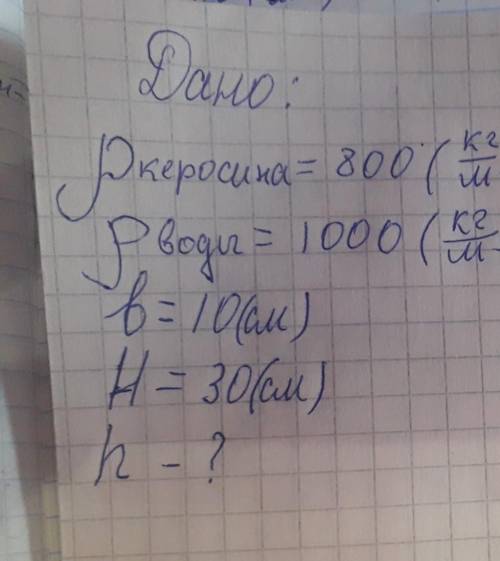 Дано:
ρкеросина = 800 (кг/м
ρводы = 1000 (кг/м
в = 10(см)
H = 30(см)
h - ?